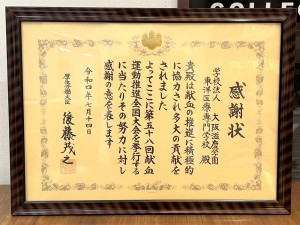 COLLE
感謝状
学校法人 大阪滋慶学園
東洋医療専門学校 殿
貴殿は献血の推進に積極的
に協力され多大の貢献を
されました
よってここに第五十八回献血
運動推進全国大会を挙行する
に当たりその努力に対し
感謝の意を表します
令和四年七月十四日
厚生労働大臣 後藤茂之